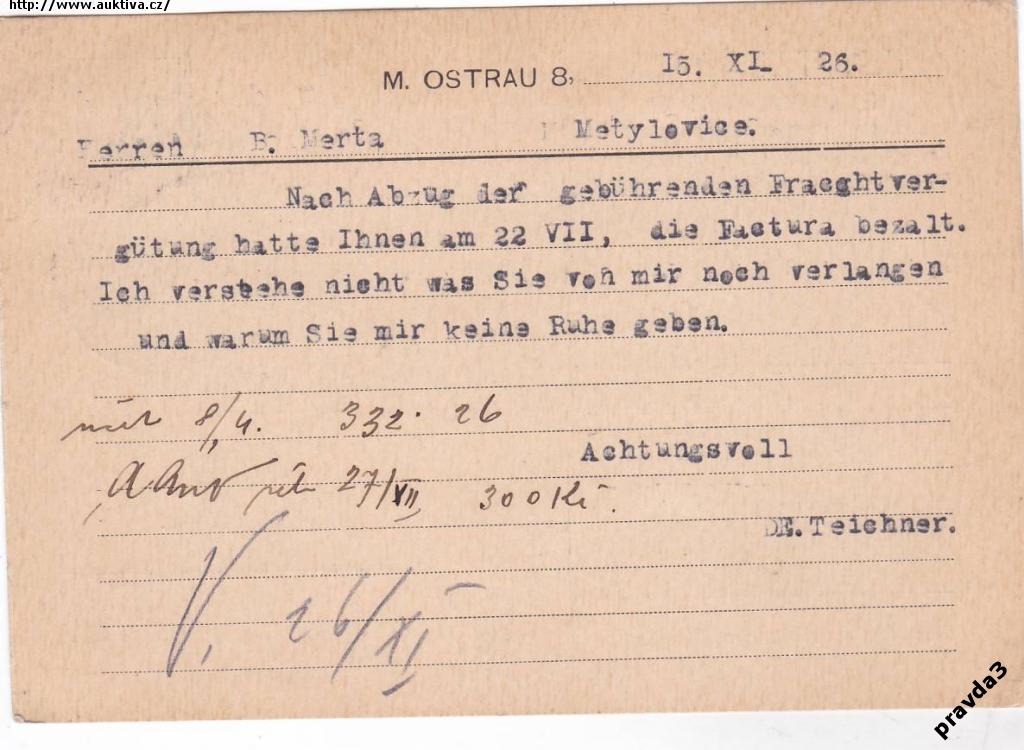 http://www.auktiva.cz/
M. OSTRAU 8, 15. XI 26.
Herren B. Merta Metylovice.
Nach Abzug der gebührenden Fracghtver-
gütung hatte Ihnen am 22 VII, die Factura bezalt.
Ich verstehe nicht was Sie von mir noch verlangen
und warum Sie mir keine Ruhe geben.
8/4. 332. 26
Achtungsvoll
27/VII, 300 Kč.
DE. Teichner.
V, 26/XI
pravda3